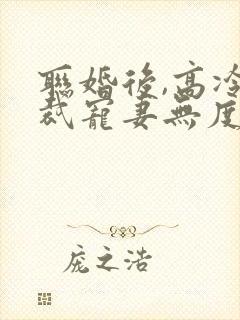 聯婚後,高冷
裁寵妻無度
庞之浩